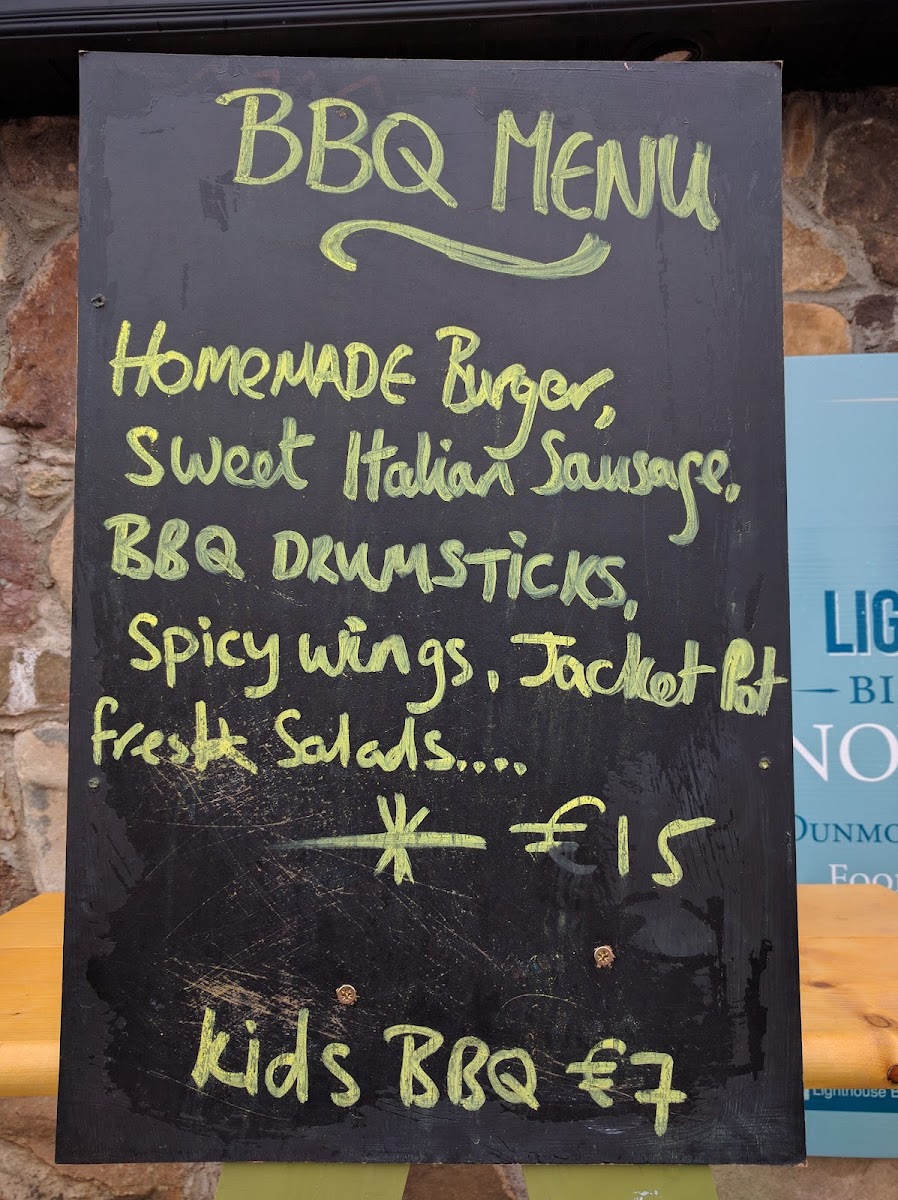 BBQ MENU
HOMEMADE Burger,
Sweet Italian Sausage,
BBQ DRUMSTICKS,
Spicy wings, Jacket Pot
fresh Salads....
* €15
kids BBQ €7
LIG
BI
NO
DUNMO
FOO
Lighthouse B